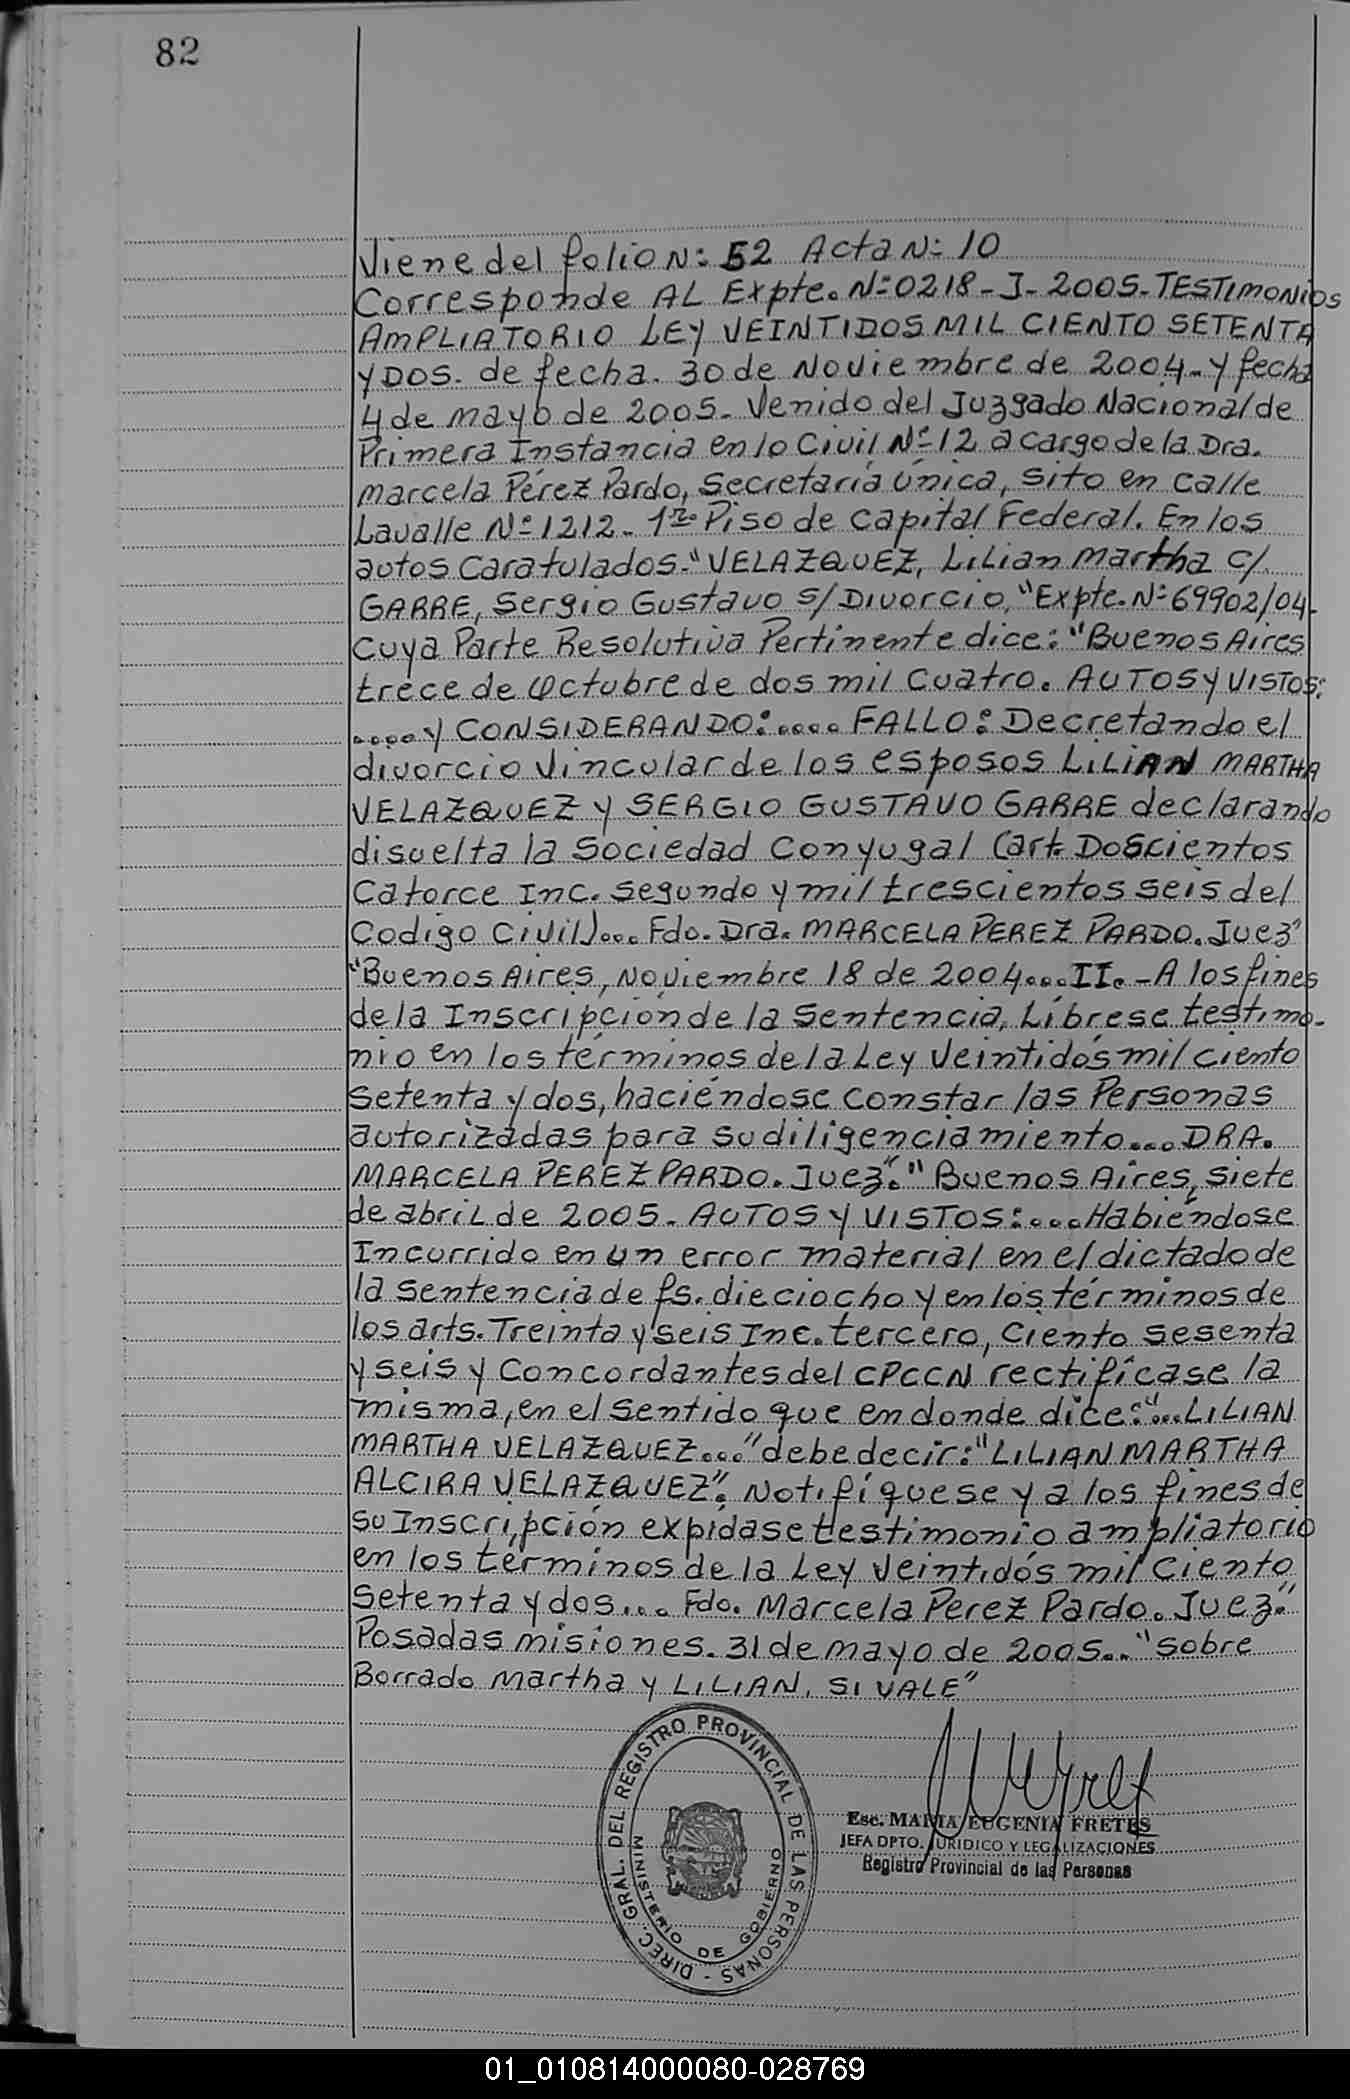 82
Viene del folio N: 52 Acta N: 10
Corresponde AL Expte. Nº 0218-J-2005-TESTIMONIOS
AMPLIATORIO LEY VEINTIDOS MIL CIENTO SETENTA
Y DOS. de fecha. 30 de Noviembre de 2004- y fecha
4 de mayo de 2005- Venido del Juzgado Nacional de
Primera Instancia en lo Civil Nº 12 a cargo de la Dra.
Marcela Pérez Pardo, Secretaría Única, sito en calle
Lavalle Nº 1212- 1ro Piso de Capital Federal. En los
autos Caratulados-"VELAZQUEZ, Lilian Martha C/
GARRE, Sergio Gustavo s/ Divorcio, "Expte. Nº 69902/04-
Cuya Parte Resolutiva Pertinente dice: "Buenos Aires
trece de Octubre de dos mil cuatro. AUTOS Y VISTOS:
.... Y CONSIDERANDO:.... FALLO: Decretando el
divorcio vincular de los esposos LILIAN MARTHA
VELAZQUEZ Y SERGIO GUSTAVO GARRE declarando
disuelta la Sociedad Conyugal (art. Doscientos
Catorce Inc. Segundo y mil trescientos seis del
Codigo Civil)... Fdo. Dra. MARCELA PEREZ PARDO. Juez"
"Buenos Aires, Noviembre 18 de 2004...II.-A los fines
de la Inscripción de la Sentencia, Líbrese testimo-
nio en los términos de la Ley Veintidós mil ciento
Setenta y dos, haciéndose constar las Personas
autorizadas para su diligenciamiento.... DRA.
MARCELA PEREZ PARDO. Juez"." Buenos Aires, siete
de abril de 2005- AUTOS Y VISTOS:....Habiéndose
Incurrido en un error material en el dictado de
la sentencia de fs. dieciocho y en los términos de
los arts. Treinta y seis Inc. tercero, Ciento sesenta
y seis y Concordantes del CPCCN rectifícase la
misma, en el sentido que en donde dice:"...LILIAN
MARTHA VELAZQUEZ..." debe decir: "LILIAN MARTHA
ALCIRA VELAZQUEZ". Notifíquese y a los fines de
su Inscripción expídase testimonio ampliatorio
en los términos de la Ley Veintidós mil ciento
Setenta y dos.... Fdo. Marcela Perez Pardo. Juez."
Posadas misiones. 31 de mayo de 2005.. "Sobre
Borrado Martha y LILIAN, SI VALE"
DIREC. GRAL. DEL REGISTRO PROVINCIAL DE LAS PERSONAS -
MINISTERIO DE GOBIERNO
Esc. MARIA EUGENIA FRETES
JEFA DPTO. JURIDICO Y LEGALIZACIONES
Registro Provincial de las Personas
01_010814000080-028769